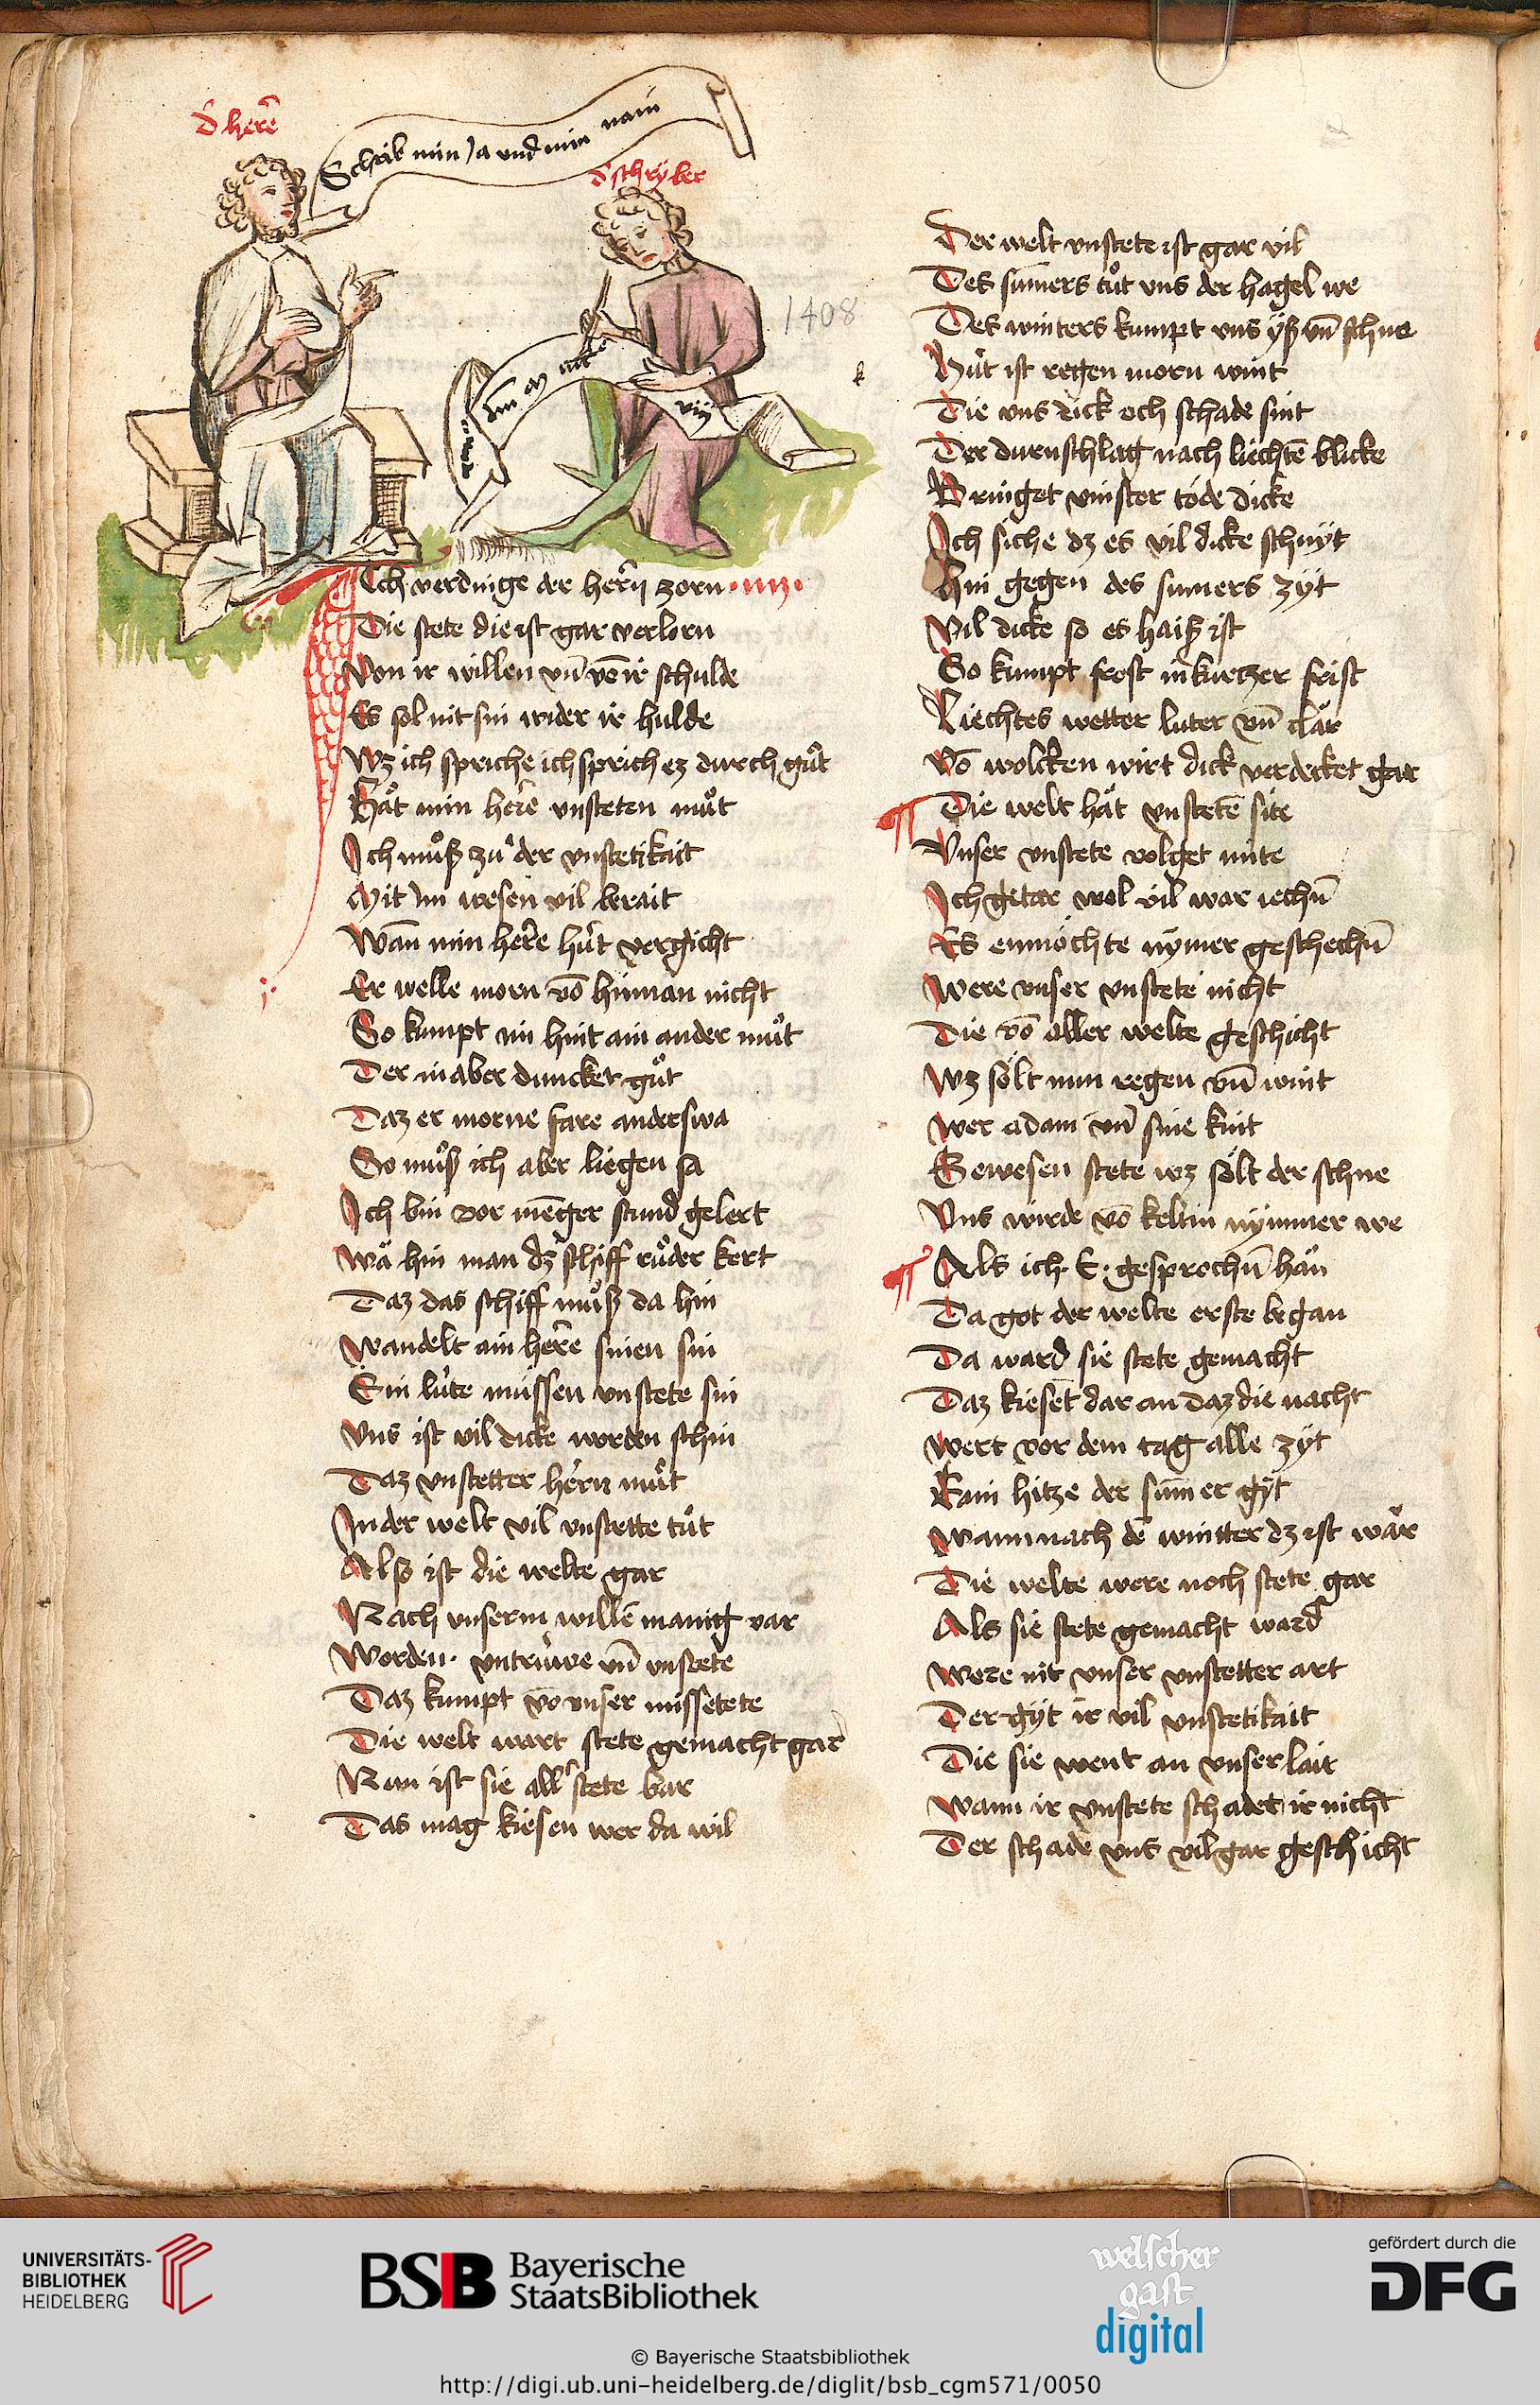 d herē
Schrib min Ja vnd min nain
d schryber
1408
Jm oz nit
viij
Ich verdinge der hern̄ zorn · iiij ·
Die stete die ist gar verlorn
Von ir willen vn̄ vō ir schulde
Es sol nit sin wider ir hulde
Wz ich spriche ich sprich ez durch gůt
Hăt min herre vnsteten můt
Ich můß zů der vnstetikait
Mit Jm wesen vil berait
Wan̄ min herre hút vergicht
Er welle morn vō hinnan nicht
So kumpt im hint ain ander můt
Der in aber duncket gůt
Daz er morne fare anderswa
So můß ich aber liegen sa
Ich bin vor mēger stund gelert
Wă hin man dz schiff růder kert
Daz das schiff můß da hin
Wandelt ain herre sinen sin
Sin lúte müssen vnstete sin
Vns ist vil dicke worden schin
Daz vnstetter hern můt
In der welt vil vnstette tůt
Alß ist die welte gar
Nach vnserm willē manig var
Worden · vntrúwe vn̄ vnstete
Daz kumpt vō vnser missetete
Die welt wart stete gemacht gar
Nun ist sie all stete bar
Das mag kiesen wer da wil
k
Der welt vnstete ist gar vil
Des sūmers tůt vns der hagel we
Des winters kumpt vns ÿß vn̄ schne
Hút ist regen morn wint
Die vns dick och schade sint
Der durnschlag nach liechtē blicke
Bringet vinster tode dicke
Ich siche dz es vil dicke schnÿt
Hin gegen des sumers zÿt
Vil dicke so es haiß ist
So kumpt frost in kurtzer frist
Liechtes wetter luter vn̄ clăr
Vō wolcken wirt dick verdecket gar
Die welt hăt vnstetē site
Vnser vnstete volget mite
Ich getar wol vil war iechn̄
Es enmöchte nÿmer geschechn̄
Were vnser vnstete nicht
Die vō aller welte geschicht
Wz sölt nun regen vn̄ wint
Wer adam vn̄ sine kint
Gewesen stete wz sölt der schne
Vns wirde vō keltin nÿmmer we
Als ich E · gesprochn̄ hăn
Da got der welte erste began
Da ward sie stete gemacht
Daz kieset dar an daz die nacht
Wert vor dem tag alle zÿt
Kain hitze der sūmer gÿt
Wann nach dē wintter dz ist wăr
Die welte were noch stete gar
Als sie stete gemacht ward
Were nit vnser vnstetter art
Der gÿt ir vil vnstetikait
Die sie went an vnser lait
Wann ir vnstete schadet ir nicht
Der schade vns vil gar geschicht
UNIVERSITÄTS-
BIBLIOTHEK
HEIDELBERG
BSB Bayerische
StaatsBibliothek
welscher
gast
digital
gefördert durch die
DFG
© Bayerische Staatsbibliothek
http://digi.ub.uni-heidelberg.de/diglit/bsb_cgm571/0050